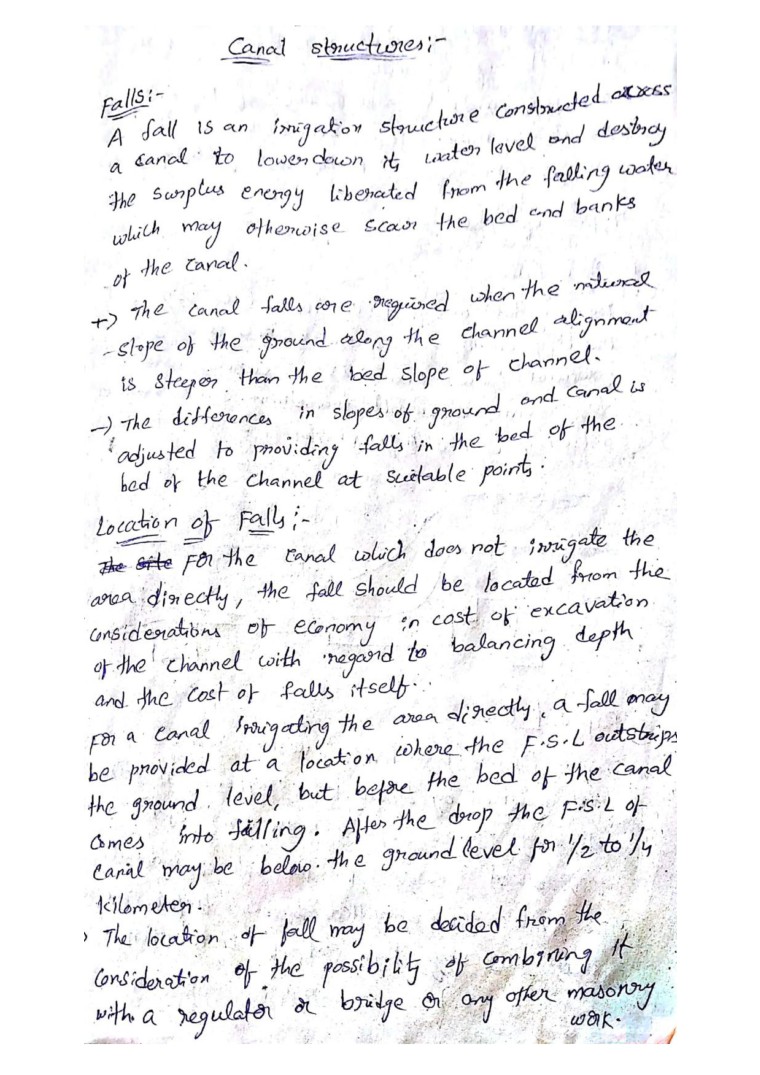 Canal structures:-
Falls:-
A fall is an irrigation structure constructed across
a canal to lowerdown its water level and destroy
the surplus energy liberated from the falling water
which may otherwise scour the bed and banks
of the canal.
+) The canal falls are required when the natural
-slope of the ground along the channel alignment
is steeper than the bed slope of channel.
-) The differences in slopes of ground and canal is
adjusted to providing falls in the bed of the
bed of the channel at suitable points.
Location of Falls:-
The site For the canal which does not irrigate the
area directly, the fall should be located from the
considerations of economy in cost of excavation
of the channel with regard to balancing depth
and the cost of falls itself.
For a canal irrigating the area directly, a fall may
be provided at a location where the F.S.L outstrips
the ground level, but before the bed of the canal
comes into filling. After the drop the F.S.L of
canal may be below the ground level for 1/2 to 1/4
kilometer.
> The location of fall may be decided from the
consideration of the possibility of combining it
with a regulator or bridge or any other masonry
work.